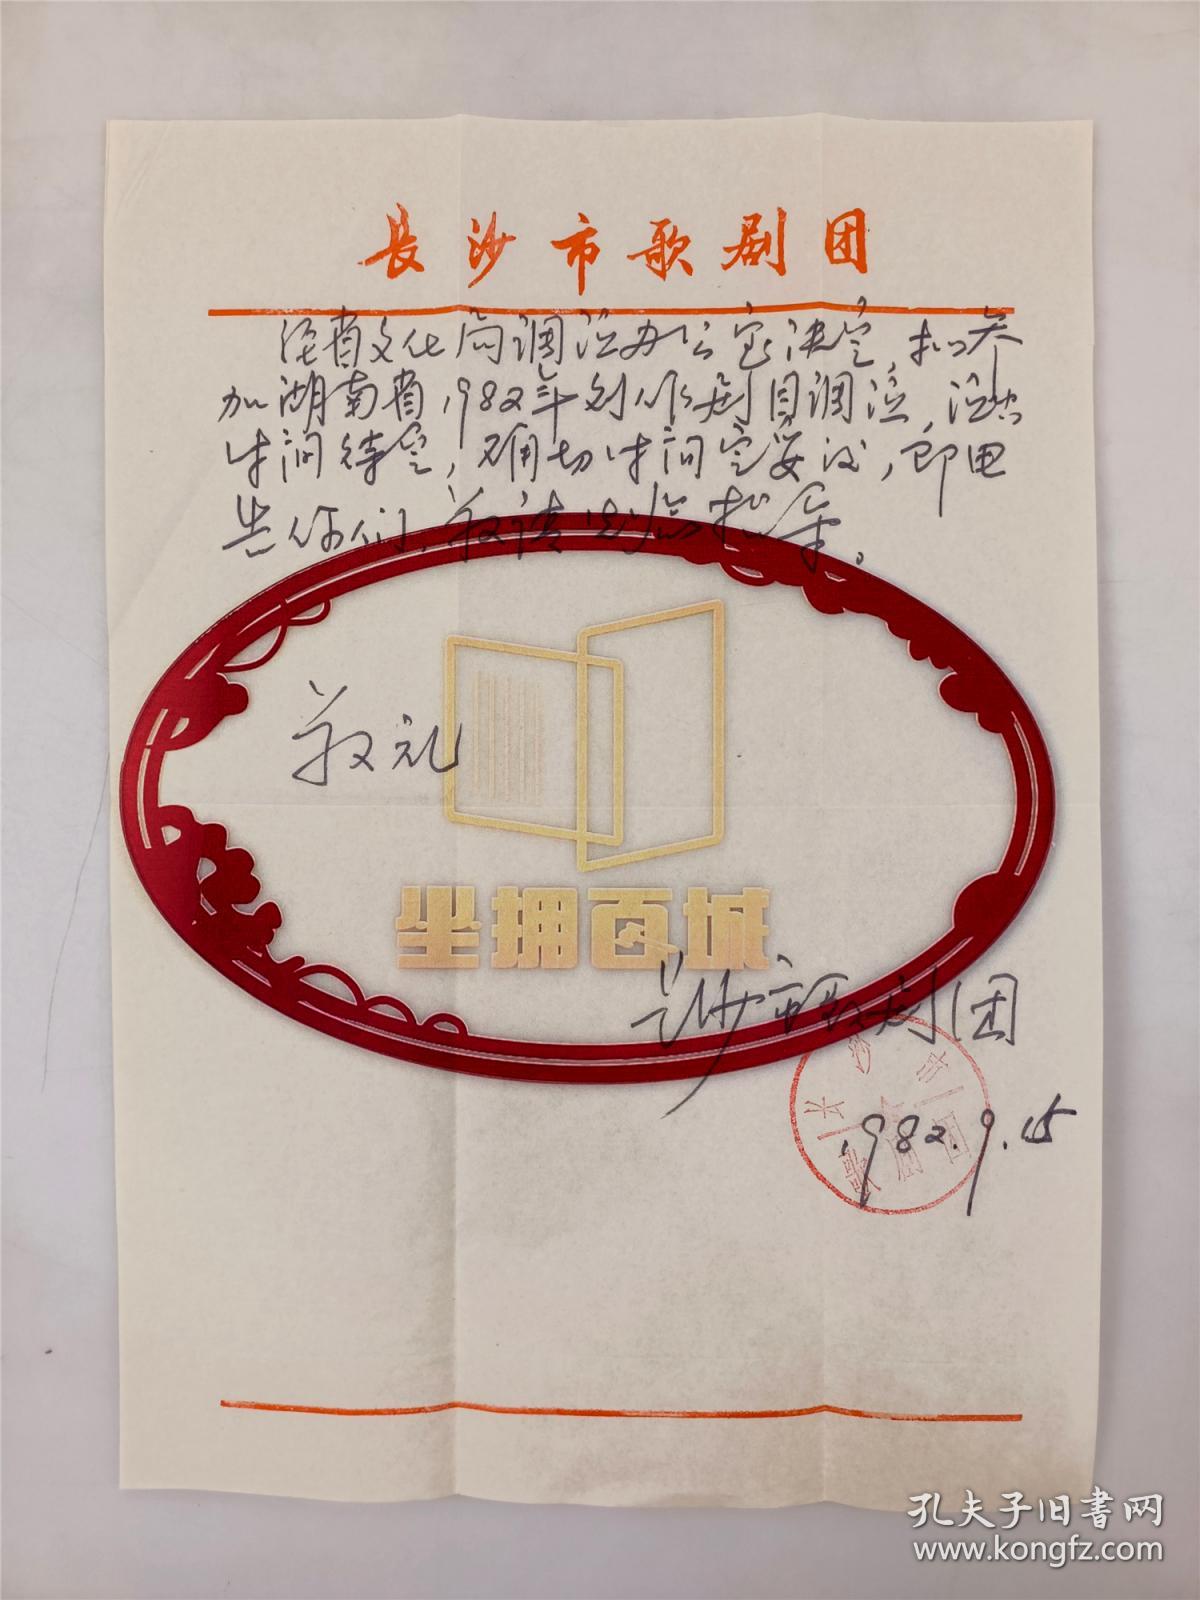 长沙市歌剧团
经省文化局调演办公室决定,拟参
加湖南省1982年创作剧目调演,演出
时间待定,确切时间定妥后,即电
告你们,敬请光临指导。
敬礼
坐拥百城
长沙市歌剧团
长沙市
歌剧团
1982.9.15
孔夫子旧书网
www.kongfz.com